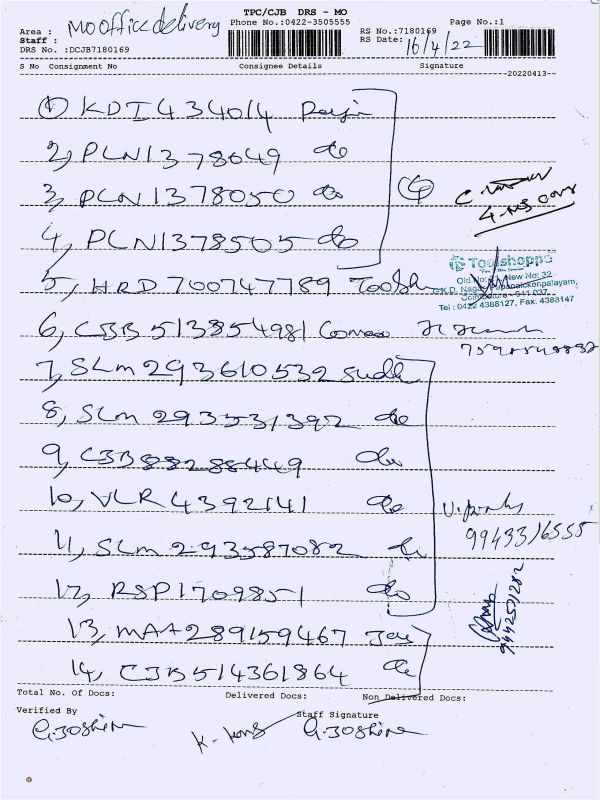 TPC/CJB DRS - MO
Area : MO office delivery
Phone No.:0422-3505555
Page No.:1
Staff :
RS No.:7180169
DRS No. :DCJB7180169
RS Date: 16/4/22
S No Consignment No Consignee Details Signature
20220413--
① KDI434014
2, PLN1378049 do
3, PLN1378050 do
4, PLN1378505 do
4
5, HRD 700747789 Toolsh
Toolshoppe
Old No: New No: 32
Coimbatore - 641 037.
Tel : 0422 4388127, Fax. 4383147
6, CJB 513854981
7, SLM 293610532 Sudh
8, SLM 293531392 do
9, CJB 88288449 do
10, VLR 4392141 do
9943316555
11, SLM 293587082 do
12, RSP1709851 do
9442531282
13, MAA289159467 Jai
14, CJB514361864 do
Total No. Of Docs: Delivered Docs: Non Delivered Docs:
Verified By
Staff Signature
G.Joshina
G.Joshina